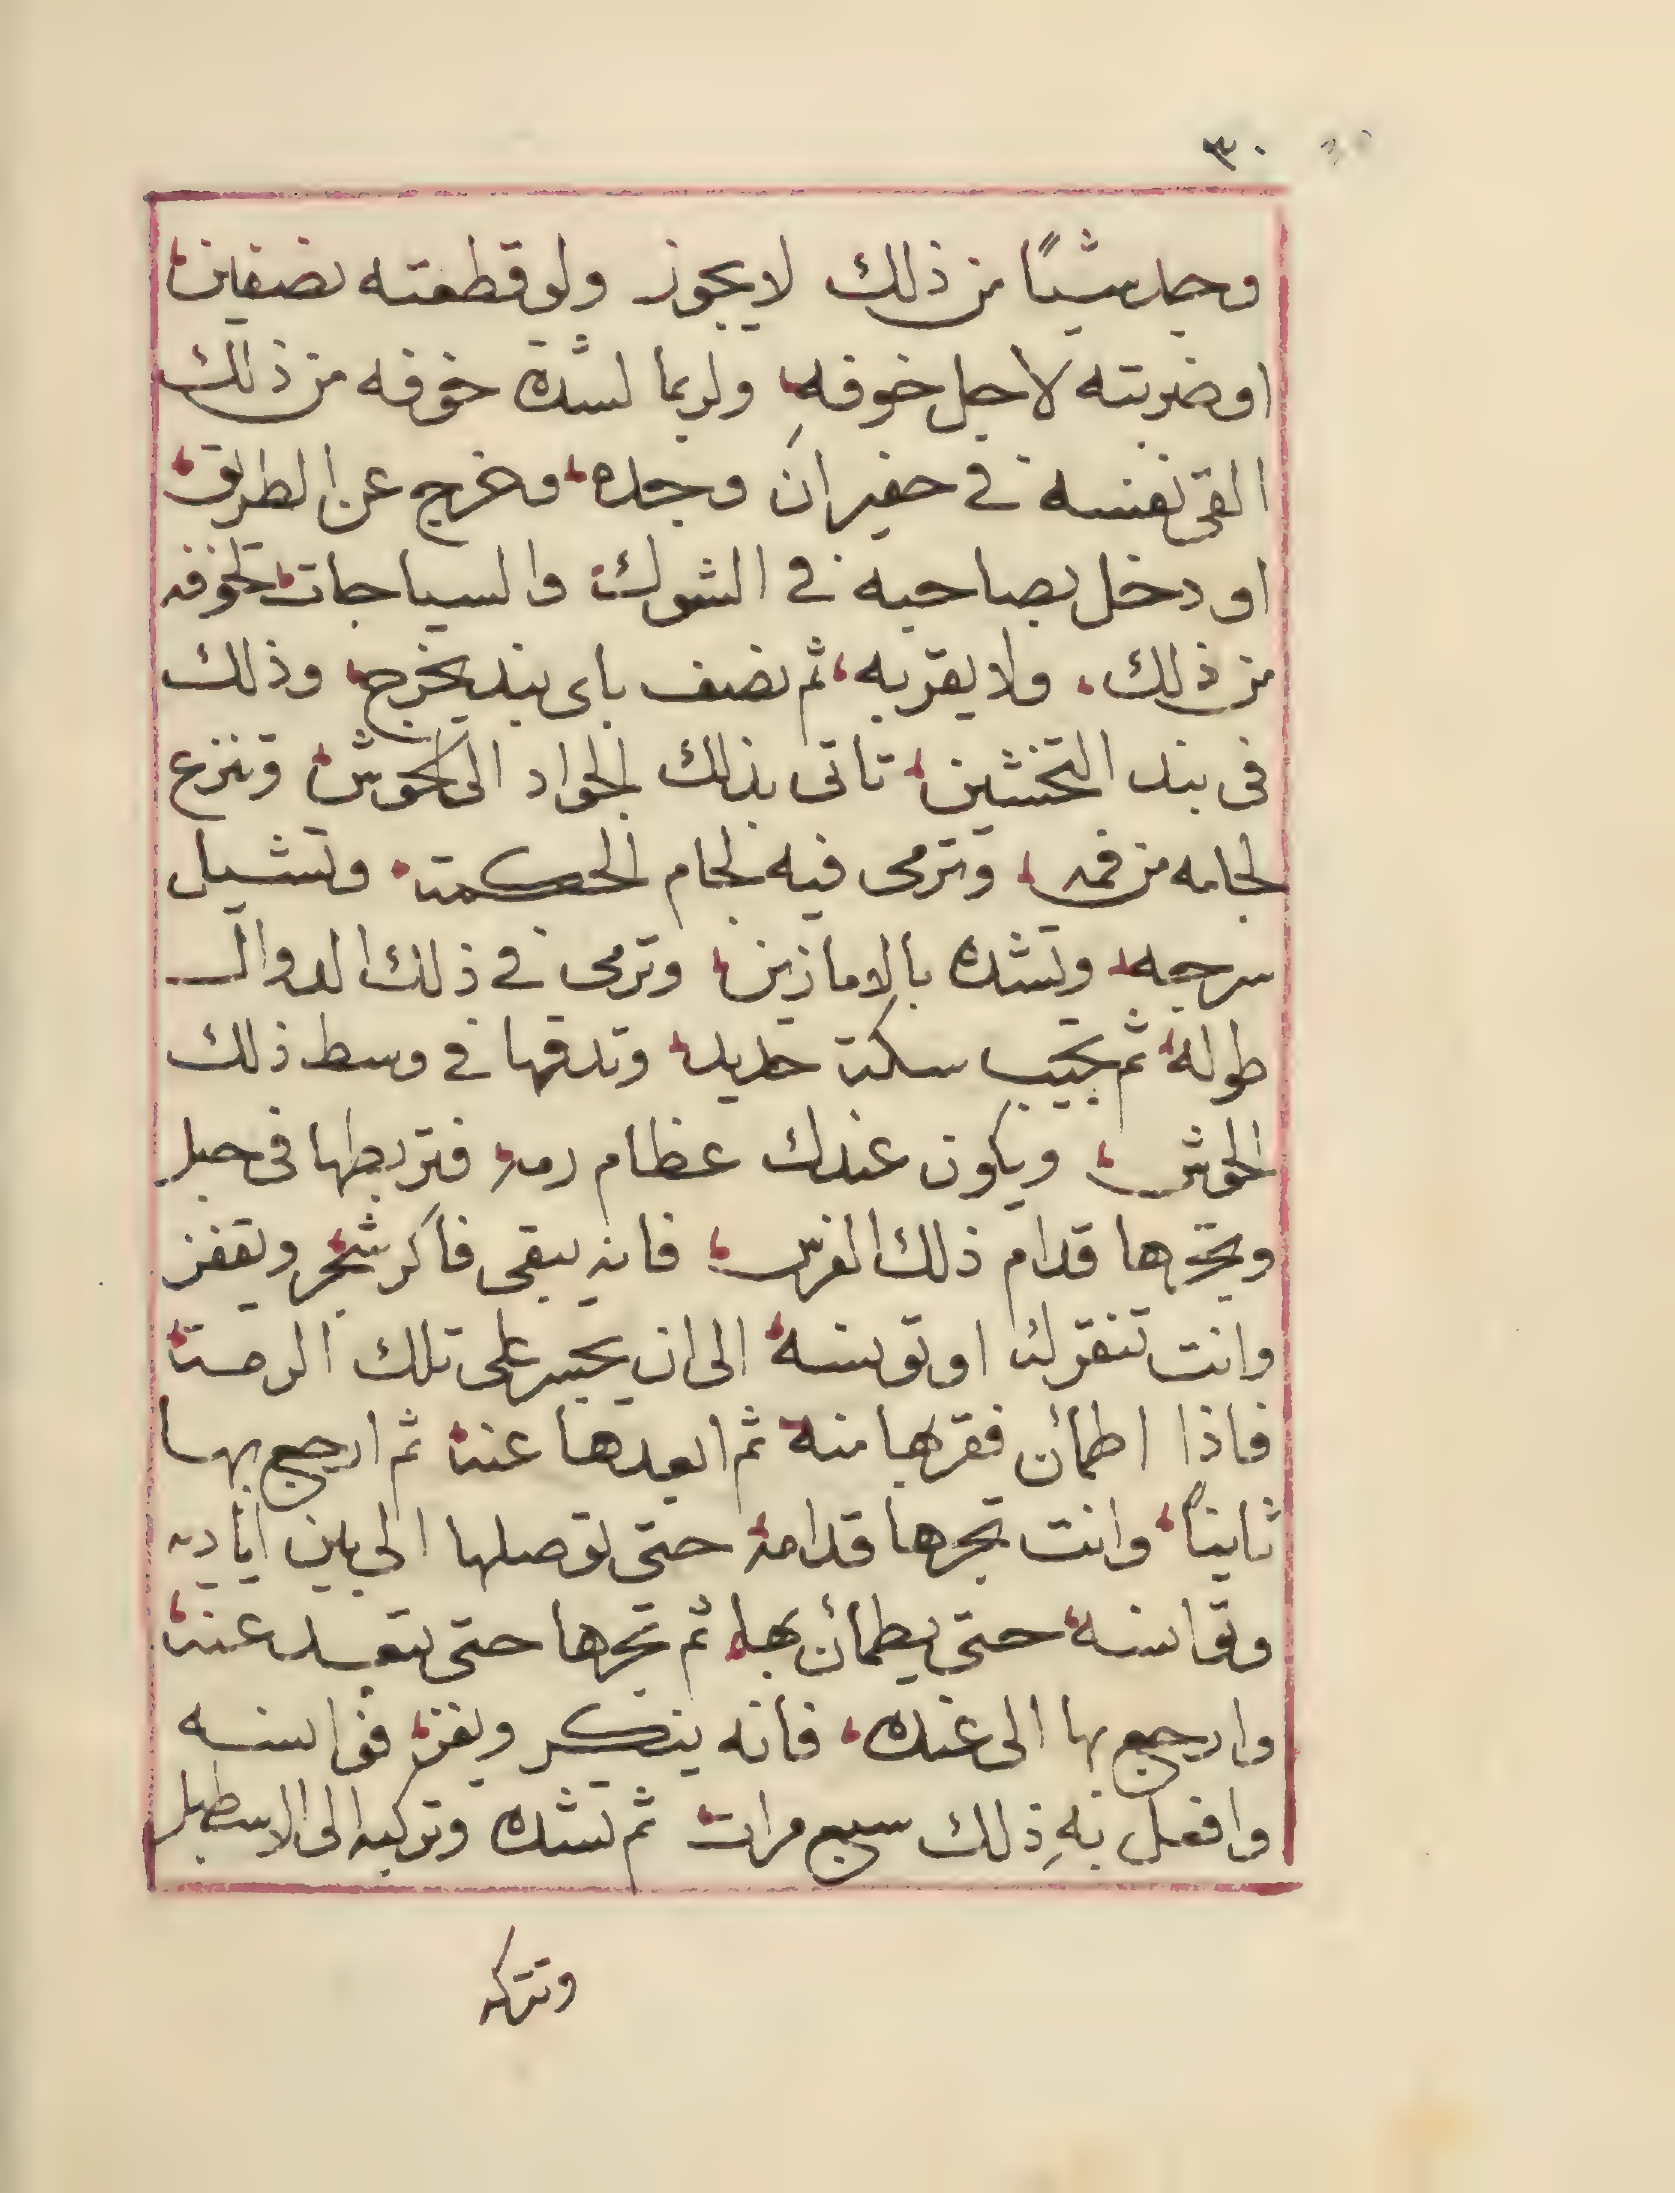 ٣٠
وجد شيًا من ذلك لا يجوز ولو قطعته نصفين
او ضربته لاجل خوفه ولربما لشدة خوفه من ذلك
القى نفسه في حفير ان وجده ومخرج عن الطريق
او دخل بصاحبه في الشوك والسياجات لخوفه
من ذلك ولا يقربه ثم نصف باى بند يخرج وذلك
فى بند التخشين تاتى بذلك الجواد الى الحوش وتنزع
لجامه من فمه وترمى فيه لجام الحكمة وتشيل
سرجه وتشده بالامازين وترمى في ذلك الدوال
طوله ثم تجيب سكة حديد وتدقها في وسط ذلك
الحوش ويكون عندك عظام رمة فتربطها فى حبل
وتجرها قدام ذلك الفرس فانه يبقى فاكر شخر ويقفز
وانت تنقر له او تونسه الى ان يجسر على تلك الرمة
فاذا اطمأن فقربها منه ثم ابعدها عنه ثم ارجع بها
ثانيًا وانت تجرها قدامه حتى توصلها الى بين اياديه
وتوانسه حتى يطمأن بها ثم تجرها حتى تبعد عنه
وارجع بها الى عنده فانه ينكر ويفز فوانسه
وافعل به ذلك سبع مرات ثم تشده وتركبه الى الاسطبل
وتتركه